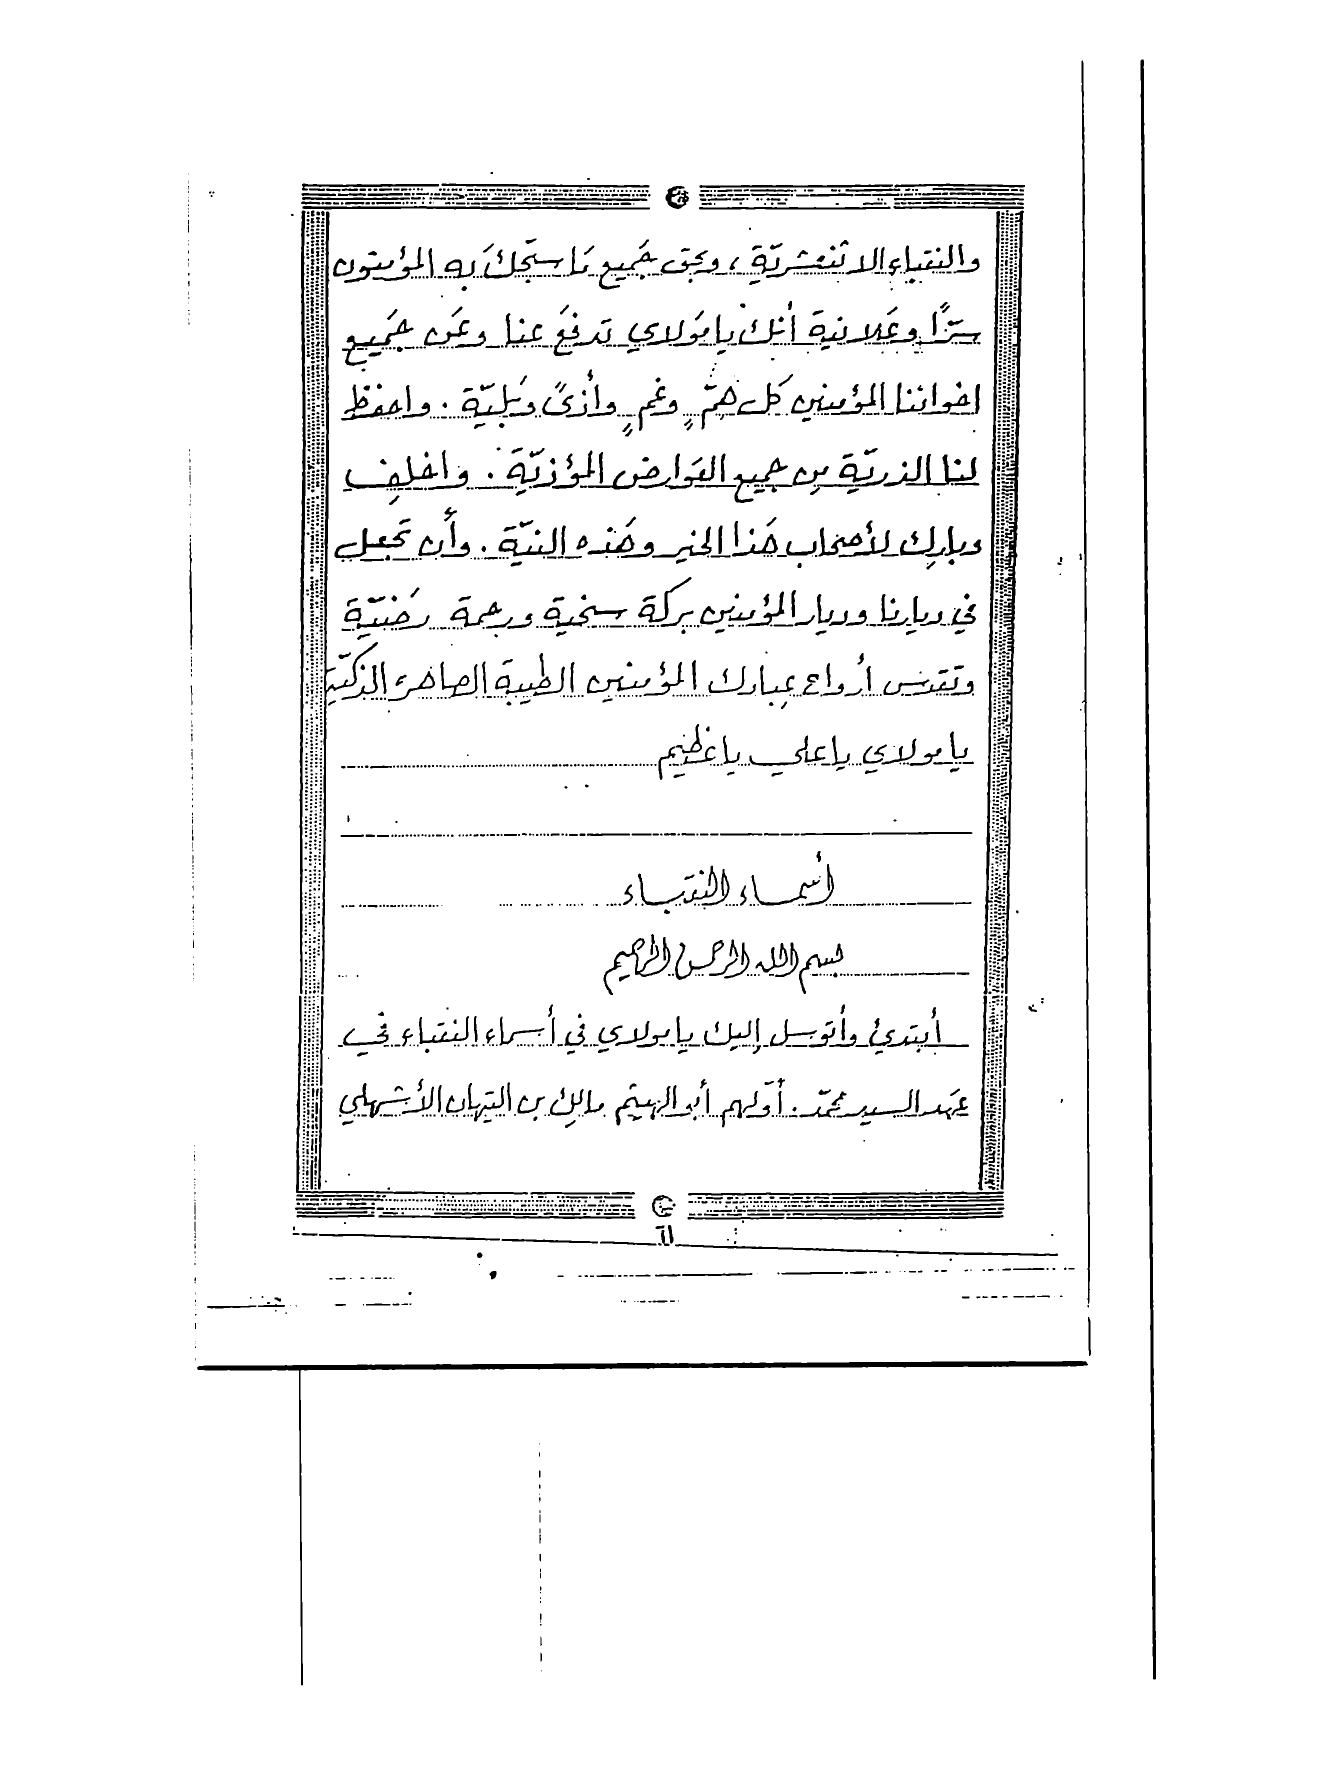 والنقباء الاثنعشريّة ، وبحق جَميع مَا سبّحكَ به المؤمنون
سرّاً وعَلانية أنك يا مَولاي تدفعَ عنا وعَن جَميع
اخواننا المؤمنين كَل همّ وغم وأذىً وبَليّة . واحفظ
لنا الذريّة من جميع العَوارض المؤذيّة . واخلف
وبارك لأصحاب هَذا الخير وهَذه النيّة . وأن تجَعل
في ديارنا وديار المؤمنين بركة سخية ورحمة رضَيّة
وتقدس أرواح عبادك المؤمنين الطيبة الطاهرة الزكيّة
يا مولاي يا علي يا عَظيم
أسماء النقباء
بسم الله الرحمن الرحيم
أبتدئ وأتوسل إليك يا مولاي في أسماء النقباء في
عهَد السيد محمّد . أوّلهم أبو الهيثم مالك بن التيهان الأشهلي
٦١